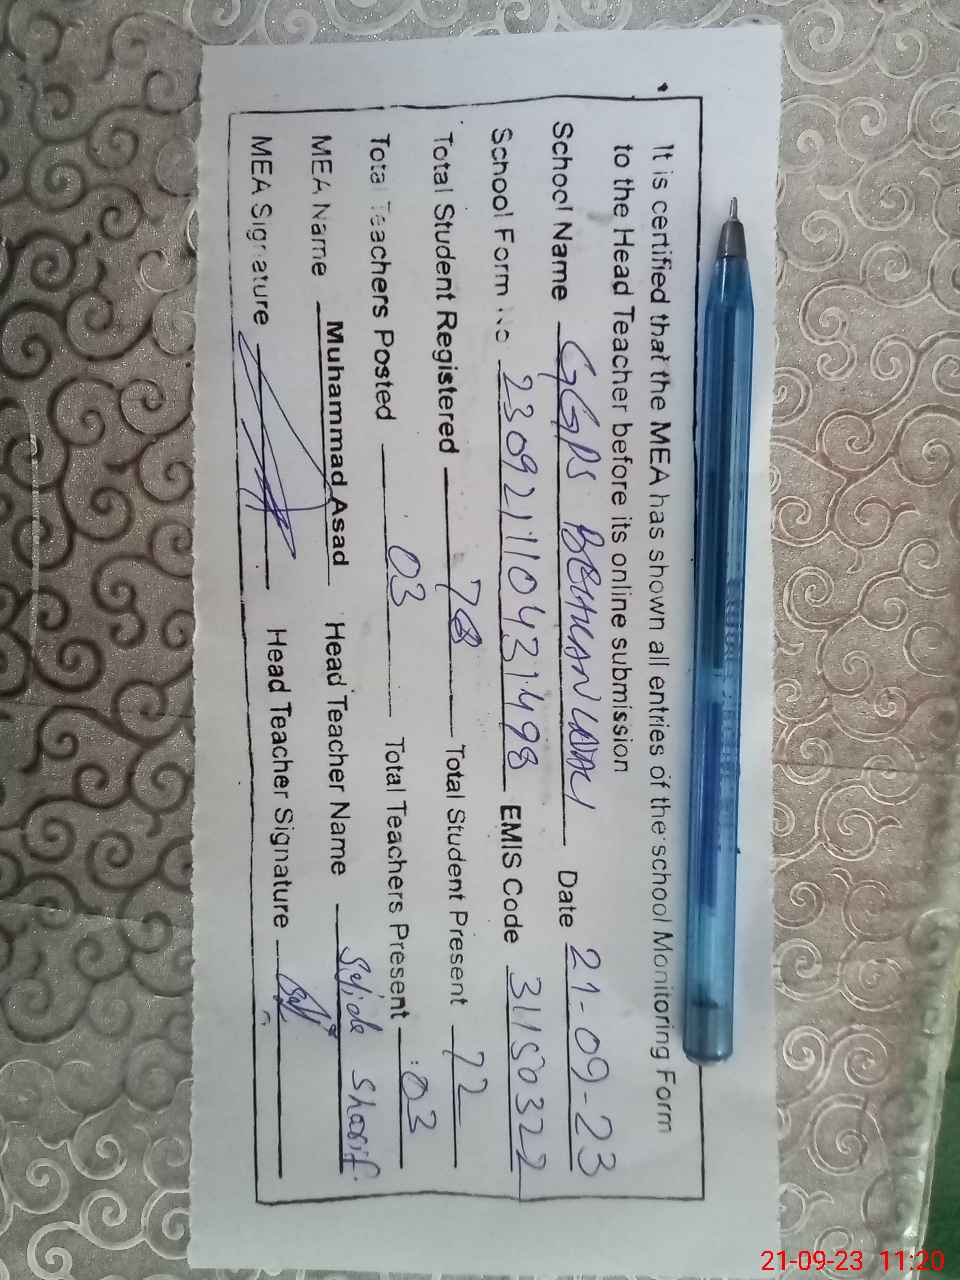 It is certified that the MEA has shown all entries of the school Monitoring Form
to the Head Teacher before its online submission
School Name GGPS Date 21-09-23
School Form No. 230921110431498 EMIS Code 31150322
Total Student Registered 78 Total Student Present 72
Total Teachers Posted 03 Total Teachers Present 03
MEA Name Muhammad Asad Head Teacher Name Sharif
MEA Signature Head Teacher Signature
21-09-23 11:20